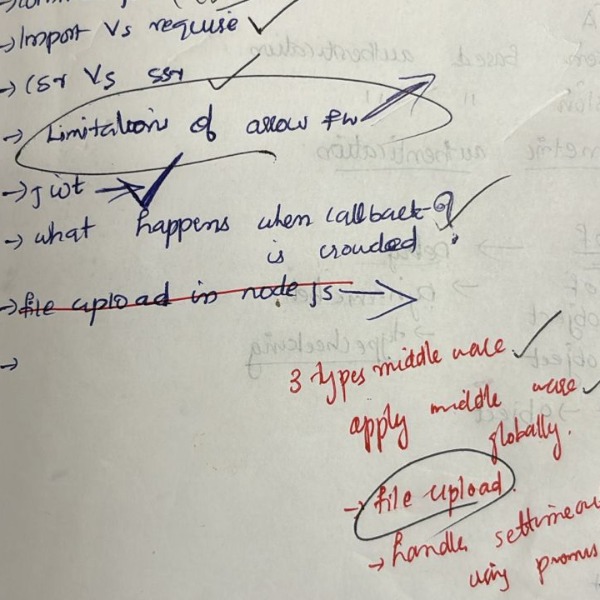 → Import Vs require ✓
→ CSr Vs SSr ✓
→ Limitation of arrow fn
→ jwt → ✓
→ what happens when callback Q ✓
is crowded ?
→ file upload in node js →
→
3 types middle ware ✓
apply middle ware ✓
globally.
→ file upload
→ handle settimeou
using promis